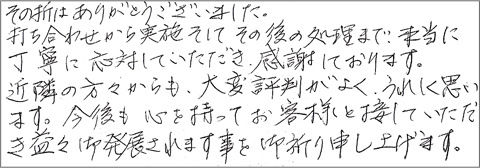 その折はありがとうございました。
打ち合わせから実施そしてその後の処理まで、本当に
丁寧に応対していただき、感謝しております。
近隣の方々からも、大変評判がよく、うれしく思い
ます。今後も心を持ってお客様と接していただ
き益々御発展されます事を御祈り申し上げます。